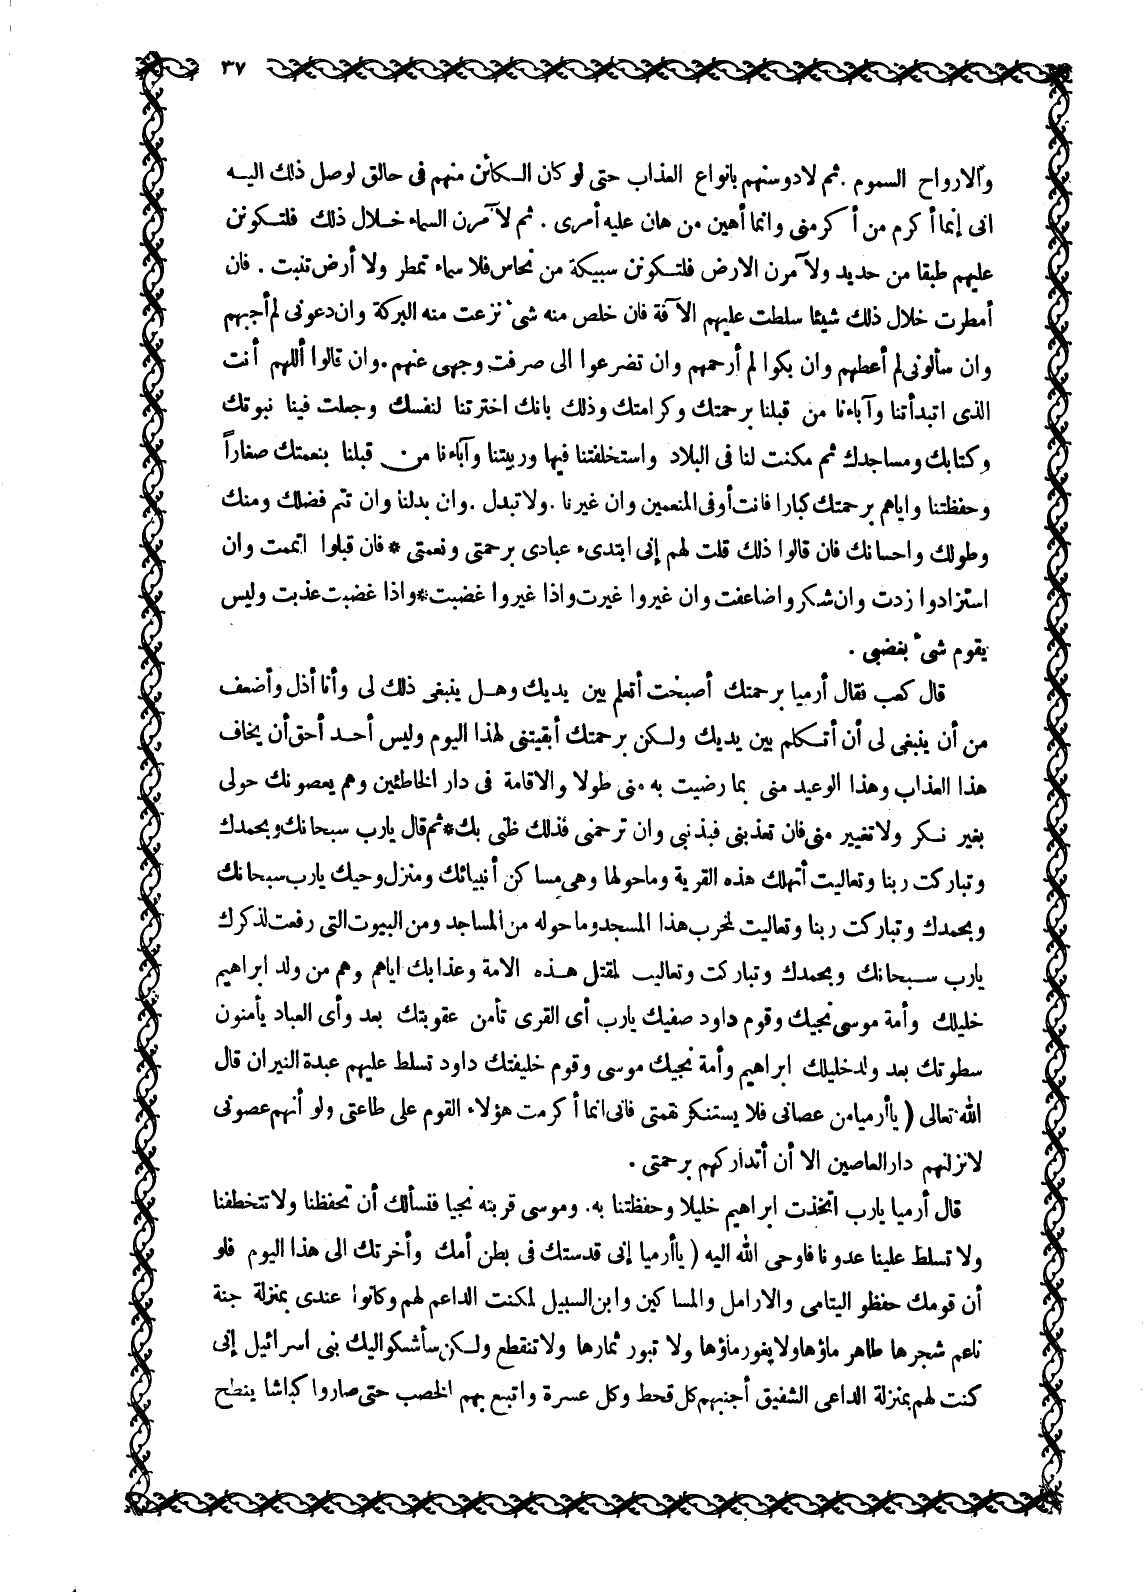 ٣٧
والارواح السموم . ثم لادوسنهم بانواع العذاب حتى لو كان الكائن منهم فى حالق لوصل ذلك اليه
انى إنما أكرم من أكرمنى وانما أهين من هان عليه أمرى . ثم لآمرن السماء خلال ذلك فلتكونن
عليهم طبقا من حديد ولآمرن الارض فلتكونن سبيكة من نحاس فلا سماء تمطر ولا أرض تنبت . فان
أمطرت خلال ذلك شيئا سلطت عليهم الآفة فان خلص منه شىء نزعت منه البركة وان دعونى لم أجبهم
وان سألونى لم أعطهم وان بكوا لم أرحمهم وان تضرعوا الى صرفت وجهى عنهم . وان قالوا أللهم أنت
الذى ابتدأتنا وآباءنا من قبلنا برحمتك وكرامتك وذلك بانك اخترتنا لنفسك وجعلت فينا نبوتك
وكتابك ومساجدك ثم مكنت لنا فى البلاد واستخلفتنا فيها وربيتنا وآباءنا من قبلنا بنعمتك صغاراً
وحفظتنا واياهم برحمتك كبارا فانت أوفى المنعمين وان غيرنا . ولا تبدل . وان بدلنا وان تتم فضلك ومنك
وطولك واحسانك فان قالوا ذلك قلت لهم إنى ابتدىء عبادى برحمتى ونعمتى * فان قبلوا اتممت وان
استزادوا زدت وان شكروا ضاعفت وان غيروا غيرت واذا غيروا غضبت * واذا غضبت عذبت وليس
يقوم شىء بغضبى .
قال كعب فقال أرميا برحمتك أصبحت أتعلم بين يديك وهل ينبغى ذلك لى وأنا أذل وأضعف
من أن ينبغى لى أن أتكلم بين يديك ولكن برحمتك أبقيتنى لهذا اليوم وليس أحد أحق أن يخاف
هذا العذاب وهذا الوعيد منى بما رضيت به منى طولا والاقامة فى دار الخاطئين وهم يعصونك حولى
بغير نكر ولا تغيير منى فان تعذبنى فبذنبى وان ترحمنى فذلك ظنى بك * ثم قال يارب سبحانك وبحمدك
وتباركت ربنا وتعاليت أتهلك هذه القرية وماحولها وهى مساكن أنبيائك ومنزل وحيك يارب سبحانك
وبحمدك وتباركت ربنا وتعاليت لمخرب هذا المسجد وما حوله من المساجد ومن البيوت التى رفعت لذكرك
يارب سبحانك وبحمدك وتباركت وتعاليت لمقتل هذه الامة وعذابك اياهم وهم من ولد ابراهيم
خليلك وأمة موسى نجيك وقوم داود صفيك يارب أى القرى تأمن عقوبتك بعد وأى العباد يأمنون
سطوتك بعد ولد خليلك ابراهيم وأمة نجيك موسى وقوم خليفتك داود تسلط عليهم عبدة النيران قال
الله تعالى ( ياأرميا من عصانى فلا يستنكر نقمتى فانى انما أكرمت هؤلاء القوم على طاعتى ولو أنهم عصونى
لانزلنهم دار العاصين الا أن أتداركهم برحمتى .
قال أرميا يارب اتخذت ابراهيم خليلا وحفظتنا به . وموسى قربته نجيا فنسألك أن تحفظنا ولا تتخطفنا
ولا تسلط علينا عدونا فاوحى الله اليه ( ياأرميا إنى قدستك فى بطن أمك وأخرتك الى هذا اليوم فلو
أن قومك حفظو اليتامى والارامل والمساكين وابن السبيل لمكنت الداعم لهم وكانوا عندى بمنزلة جنة
ناعم شجرها طاهر ماؤها ولا يغور ماؤها ولا تبور ثمارها ولا تنقطع ولكن سأشكو اليك بنى اسرائيل إنى
كنت لهم بمنزلة الداعى الشفيق أجنبهم كل قحط وكل عسرة واتبع بهم الخصب حتى صاروا كباشا ينطح